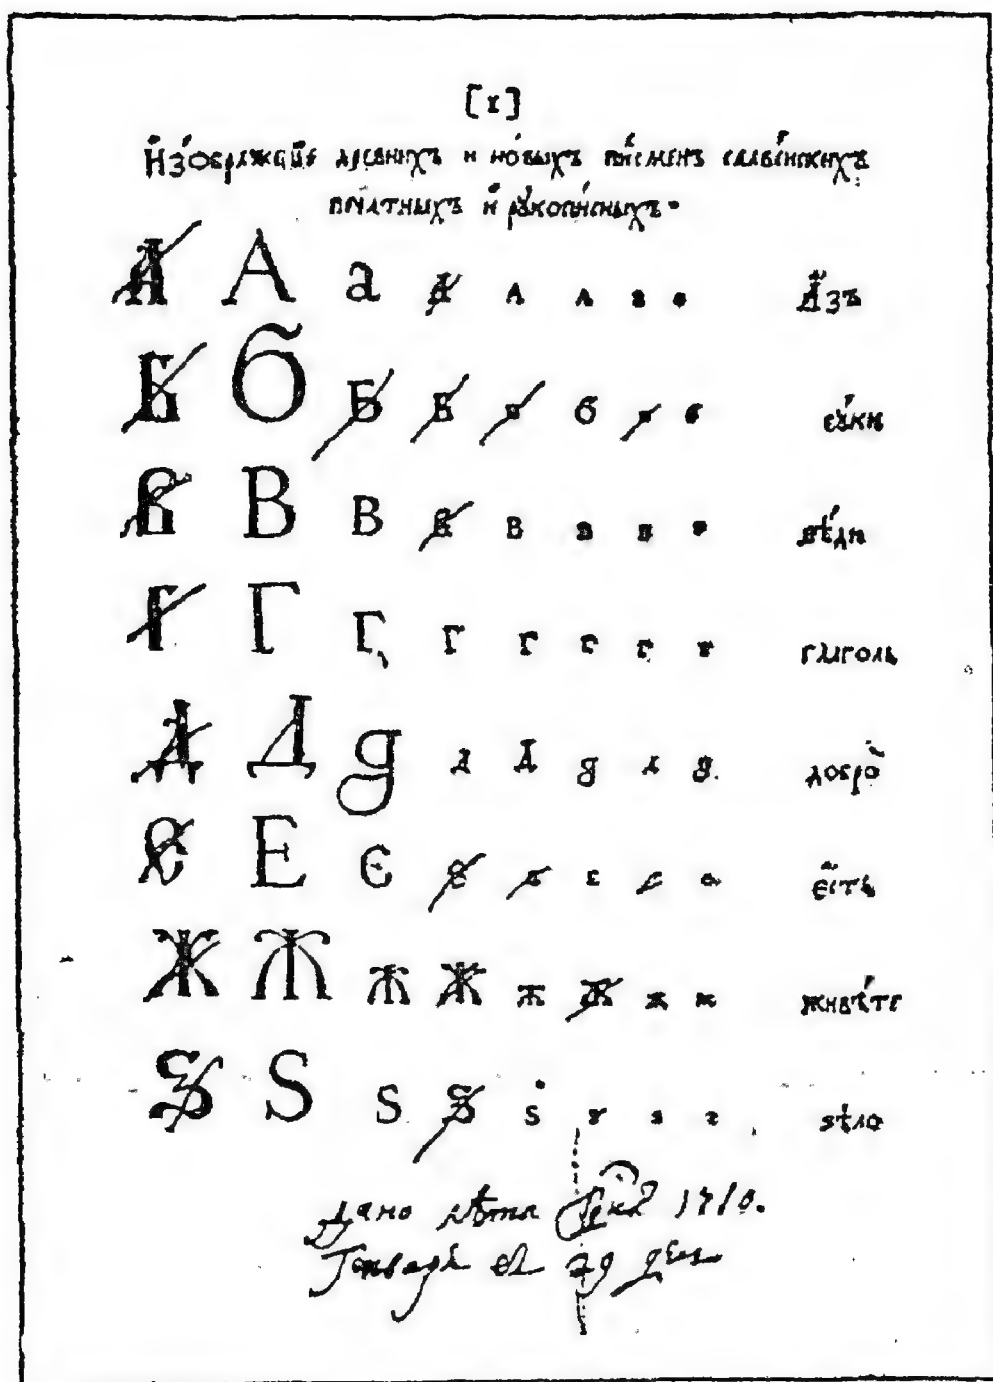 [1]
И҆зѡбраже́нїе дре́внихъ и но́выхъ пи́сменъ славе́нскихъ
печа́тныхъ и҆ рꙋкопи́сныхъ.
А А а а а а а а А҆́зъ
Б б Б Б б б б б бꙋ́ки
В В В в в в в в вѣ́ди
Г Г Г Г г г г г глаголь
Д Д д д Д д д д добро̀
Є Е Є є є є є є є҆́сть
Ж Ж ж ж ж ж ж ж живѣ́те
Ѕ Ѕ ѕ ѕ ѕ ѕ ѕ ѕ ѕѣло̀
Дано лѣта 1710.
Генваря въ 29 день